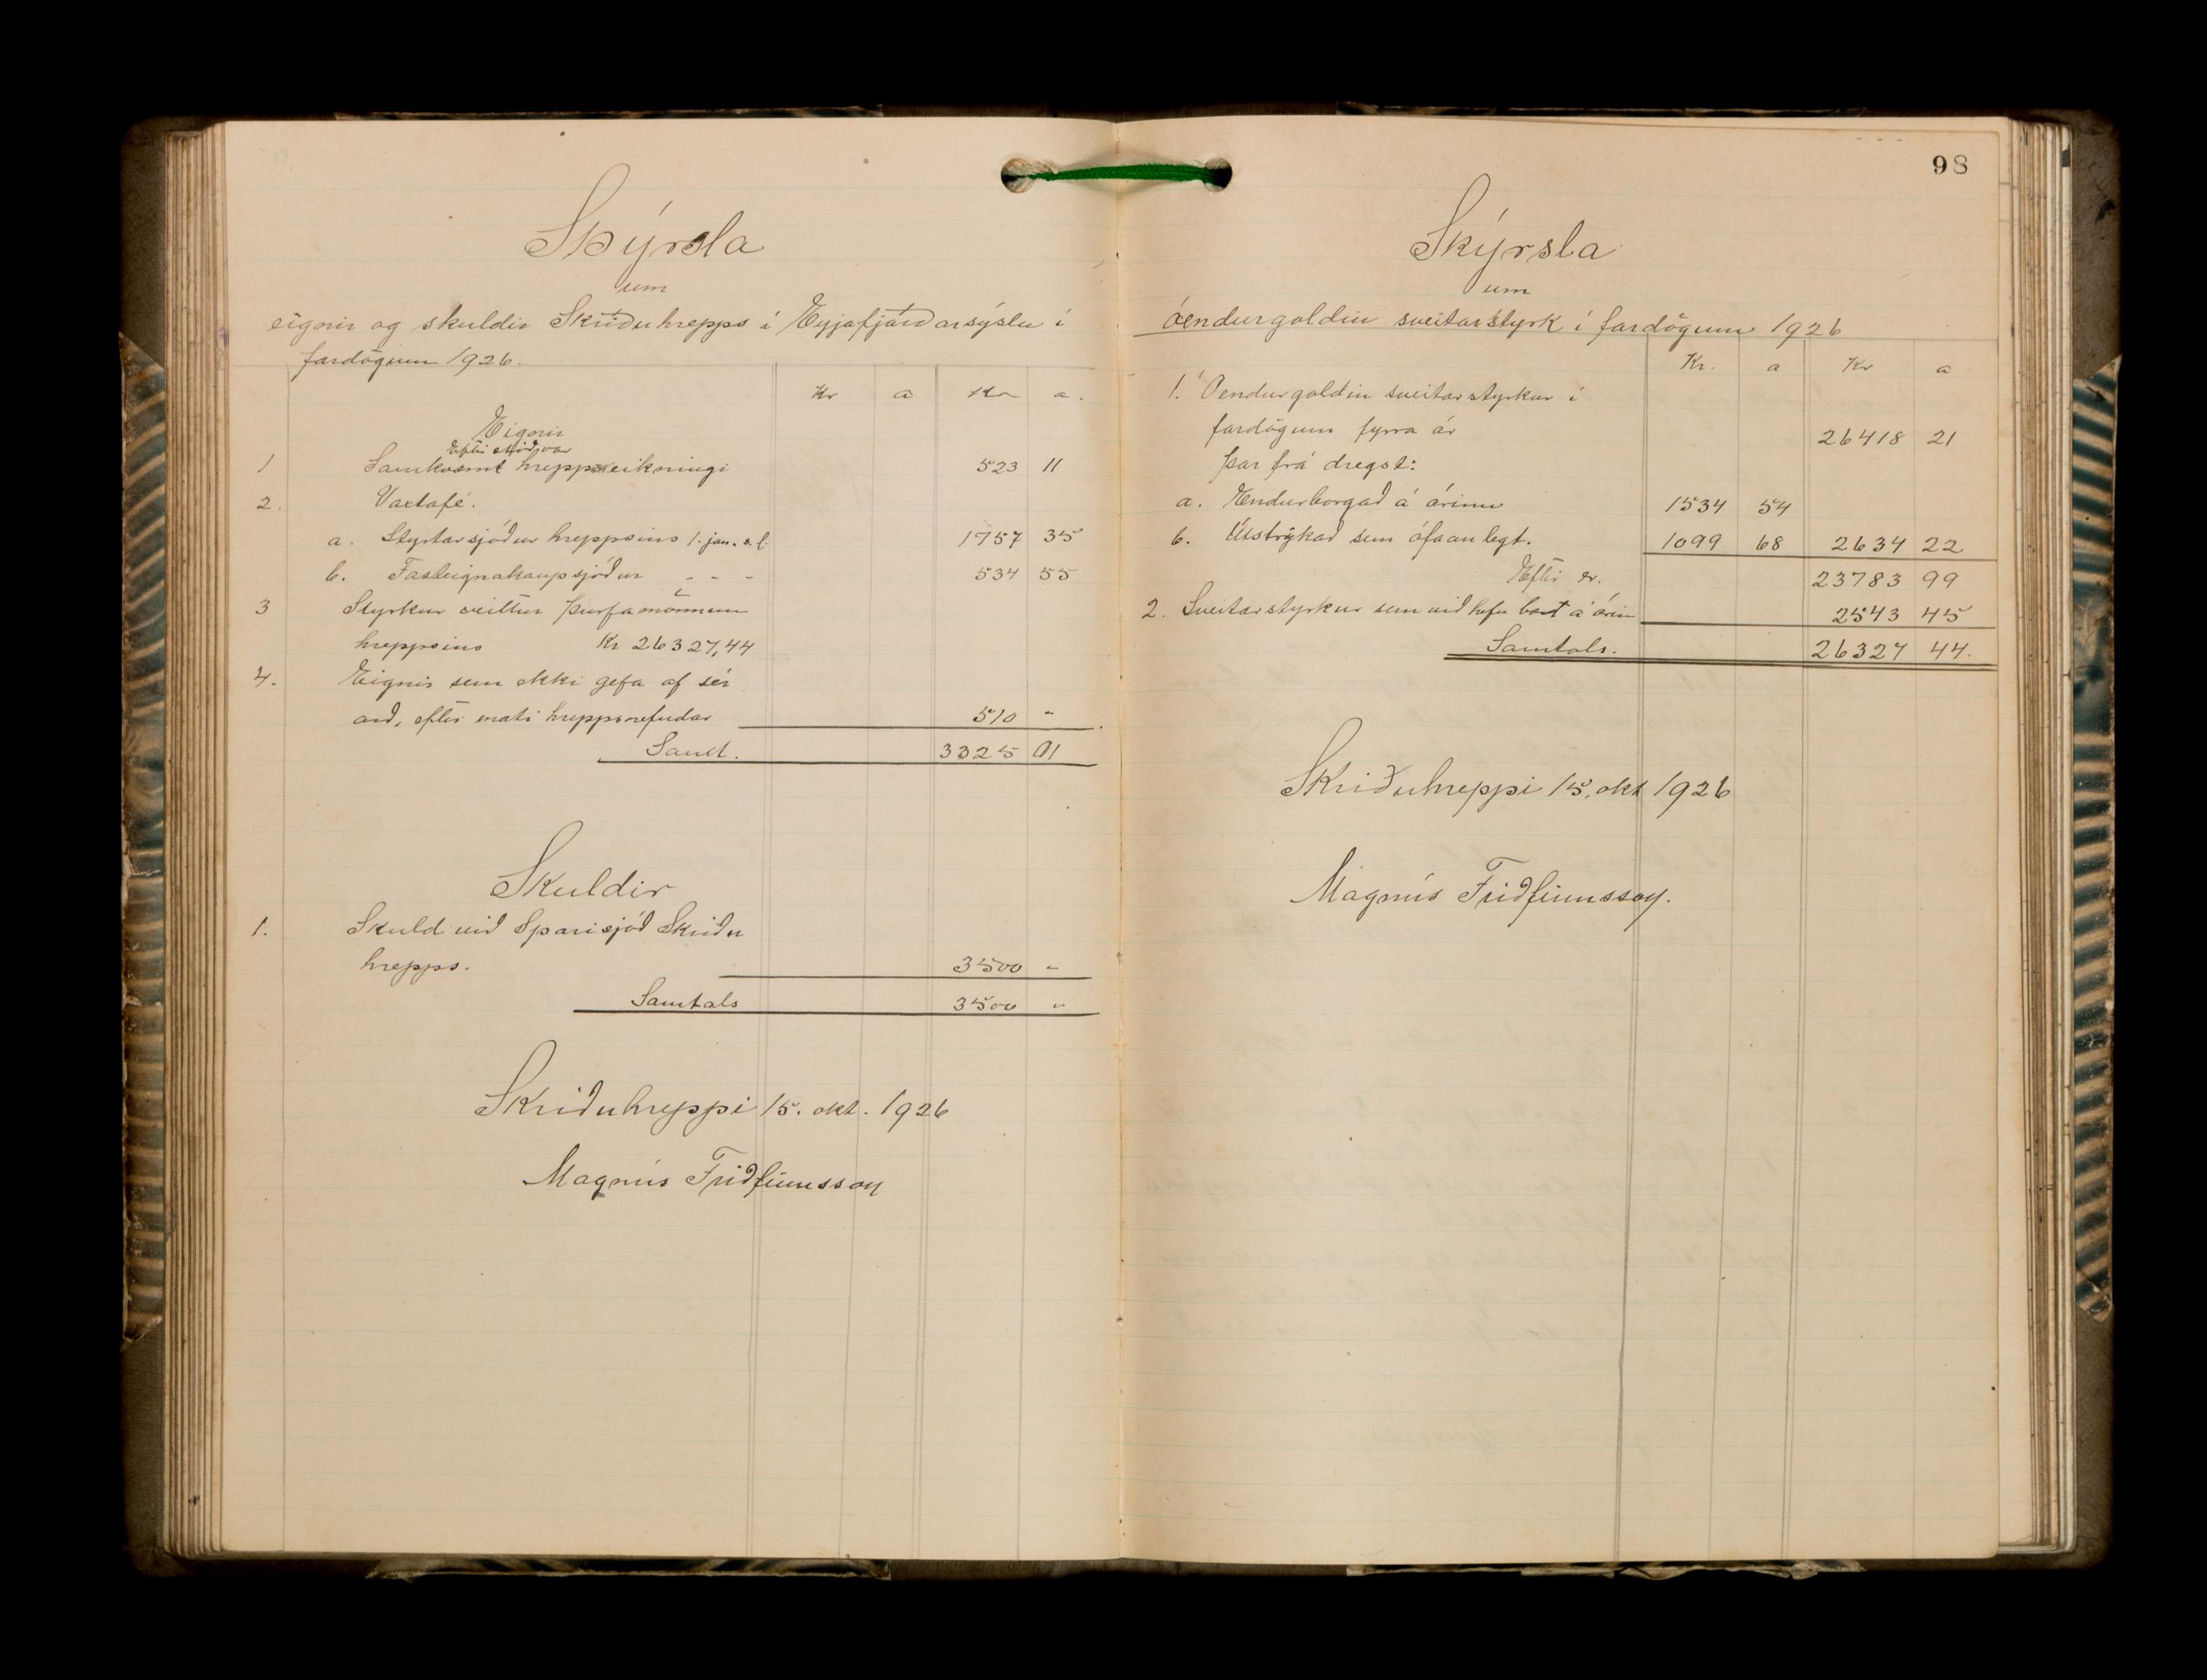 Skýrsla
um
eignir og skuldir Skriðuhrepps í Eyjafjarðarsýslu í
fardögum 1926.
Kr a Kr a.
Eignir
Eftirstöðvar
1 Samkvæmt hreppsreikningi 523 11
2. Vaxtafé.
a. Styrktarsjóður hreppsins 1. jan. s.l. 1757 35
b. Fasteignakaupsjóður - - - 534 55
3 Styrkur veittur þurfamönnum
hreppsins Kr 26327,44
4. Eignir sem ekki gefa af sér
arð, eftir mati hreppsnefndar 510 "
Samt. 3325 01
Skuldir
1. Skuld við Sparisjóð Skriðu
hrepps. 3500 "
Samtals 3500 "
Skriðuhreppi 15. okt. 1926
Magnús Friðfinnsson
98
Skýrsla
um
óendurgoldin sveitarstyrk í fardögum 1926
Kr. a Kr a
1. Óendurgoldin sveitarstyrkur í
fardögum fyrra ár 26418 21
Þar frá dregst:
a. Endurborgað á árinu 1534 54
b. Útstrykað sem ófáanlegt. 1099 68 2634 22
Eftir er. 23783 99
2. Sveitarstyrkur sem við hefir bæst á árin 2543 45
Samtals. 26327 44.
Skriðuhreppi 15. okt 1926
Magnús Friðfinnsson.